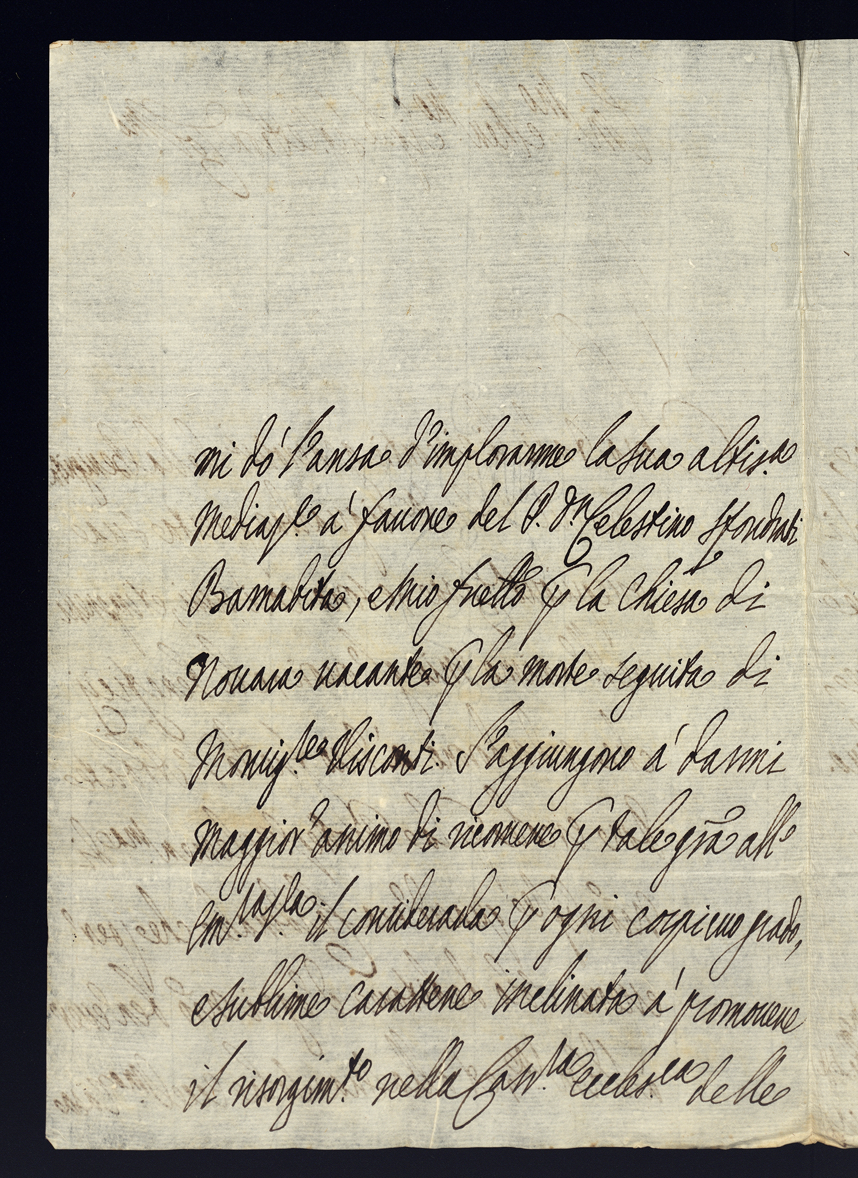 mi dó l'ansa d'implorarne la sua altis.a
Mediaz.e á fauore del P. Dn Celestino Sfondrati
Barnabita, e mio fratello p la Chiesa di
Nouara uacante p la morte seguita di
Monsig.re Visconti. S'aggiungono á darmi
Maggior animo di ricorrere p tale gra all'
il considerarla p ogni cospicuo grado,
e sublime carattere inclinata á promouere
il risorgim.to nella eccles.ca delle